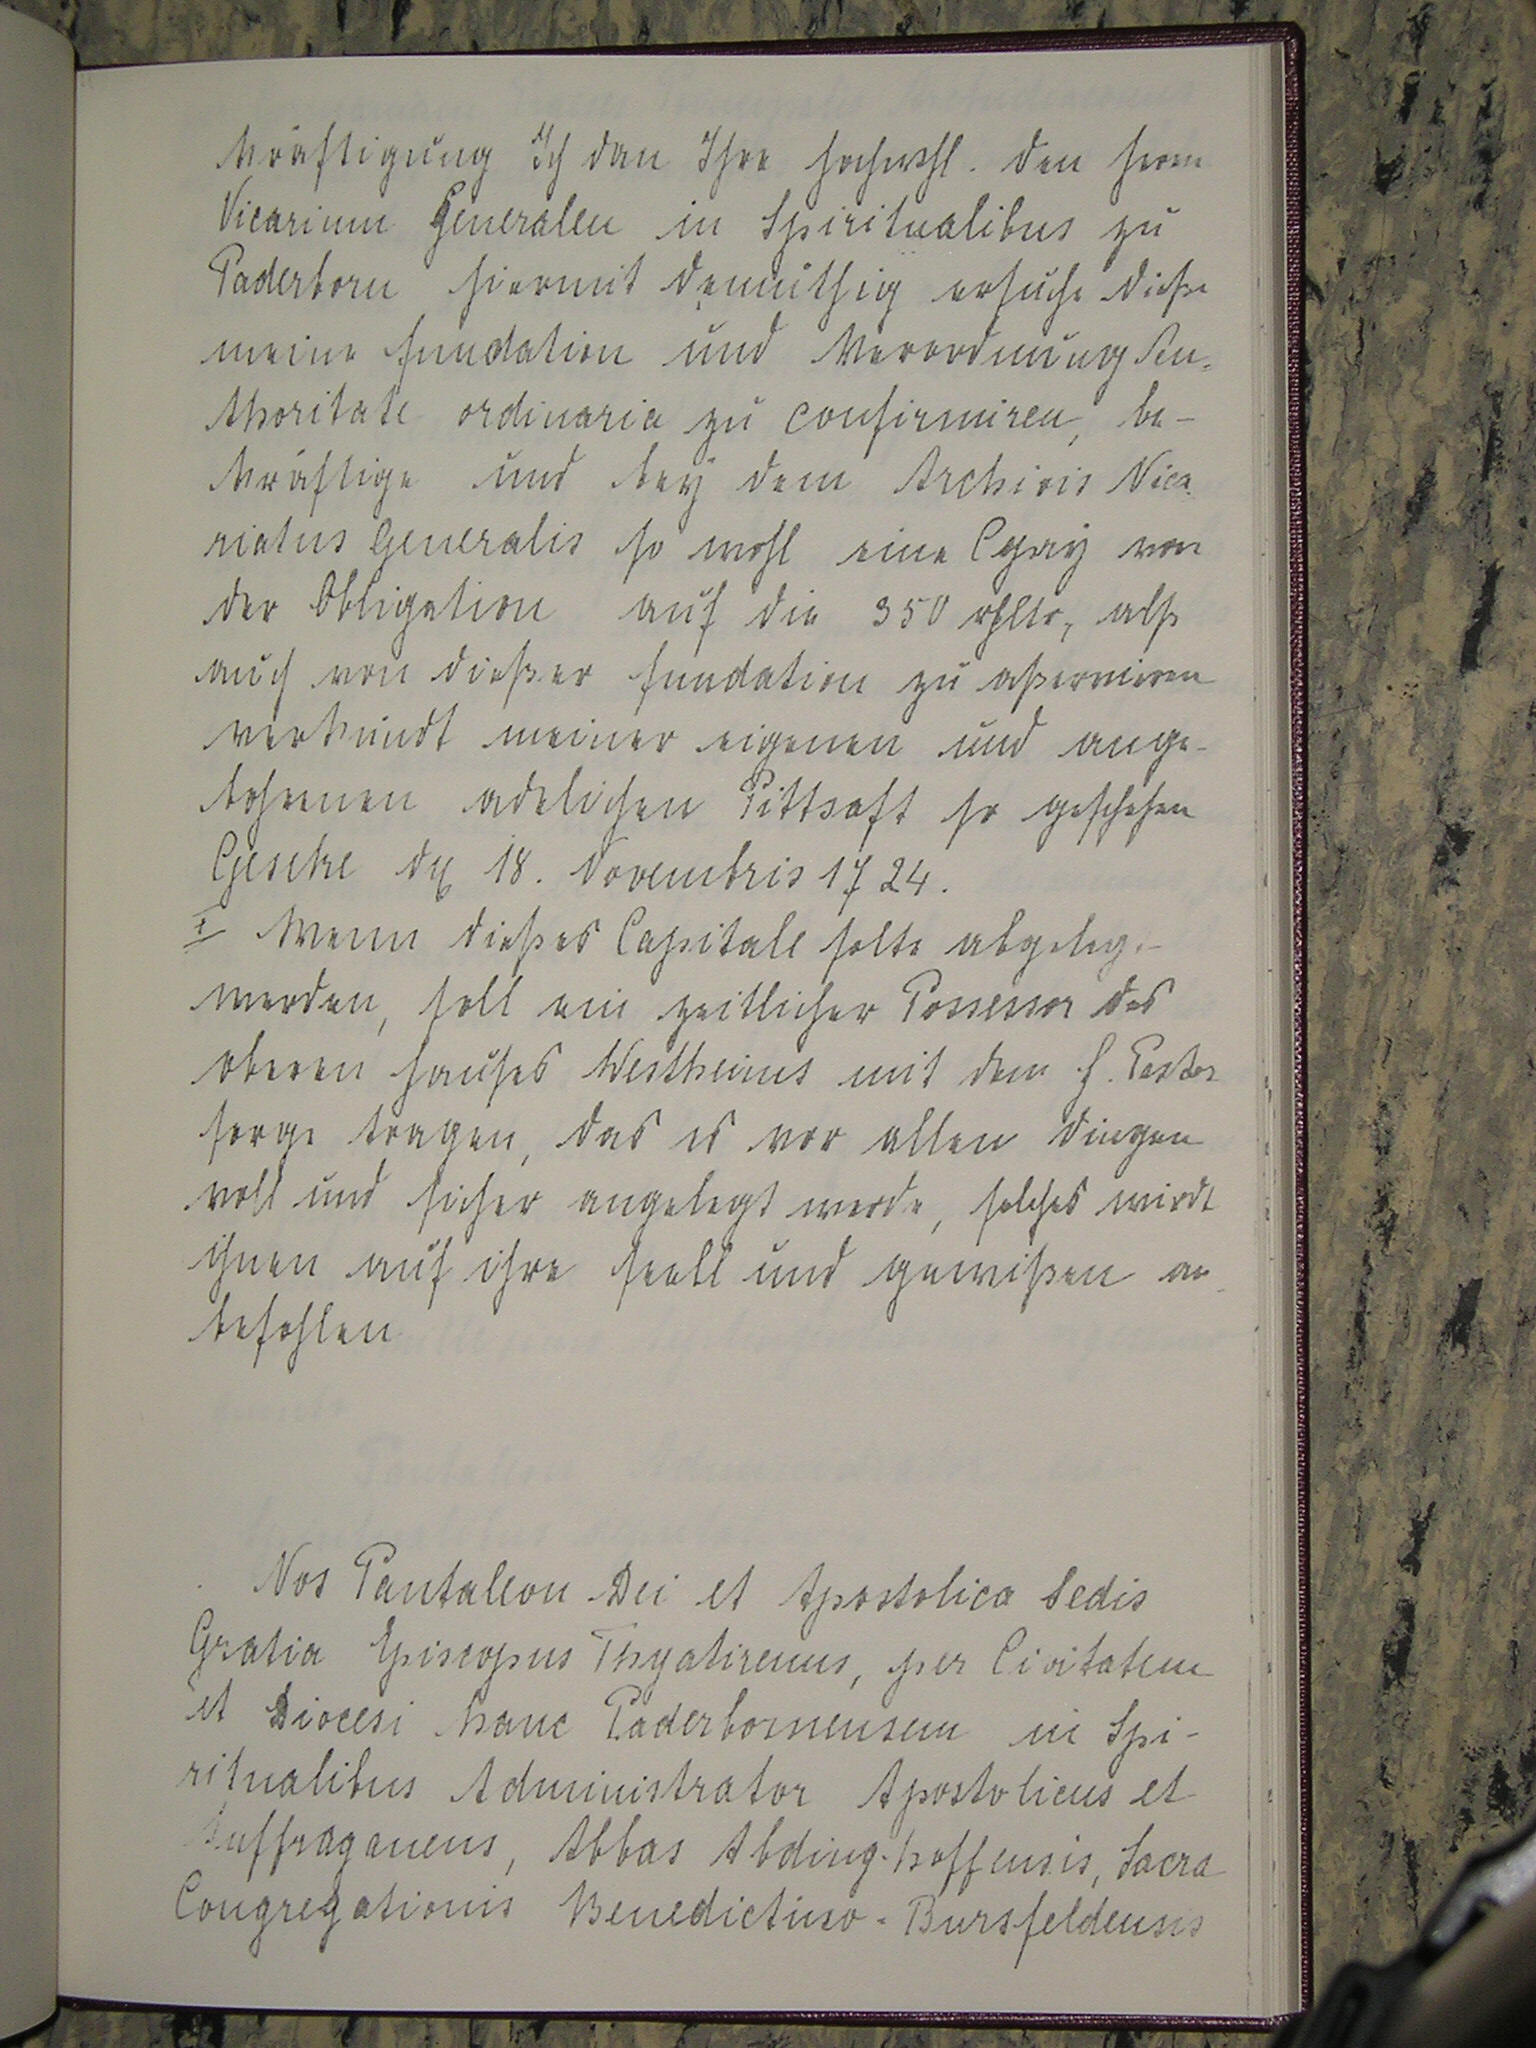 kräftigung Ich dan Ihre hochwohl. den herrn
Vicarium Generalen in Spiritualibus zu
Paderborn hiermit demüthig ersuche dieße
meine fundation und Verordnung Au-
thoritate ordinaria zu confirmiren, be-
kräftige und beÿ dem Archivis Vica
riatus Generalis so wohl eine Copÿ von
der Obligation auf die 350 rthlr, alß
auch von dießer fundation zu aßerviren
verkündt meiner eigenen und ange-
bohrnen adelichen Pittschaft so geschehen
Geseke d. 18. Novembris 1724.
Wenn dießes Capitall solte abgeleg-
werden, soll ein zeitlicher Possessor des
oberen hauses Westheims mit dem H. Pastor
sorge tragen, das es vor allen dingen
voll und sicher angelegt werde, solches wirdt
ihnen auf ihre seell und gewißen an
befohlen
Nos Pantaleon Dei et Apostolica Sedis
Gratia Episcopus Thyatirenus, per Civitatem
et Diocesi hanc Paderbornensem in Spi-
ritualibus Administrator Apostolicus et
Suffraganeus, Abbas Abding-hoffensis, Sacra
Congregationis Benedictino-Bursfeldensis